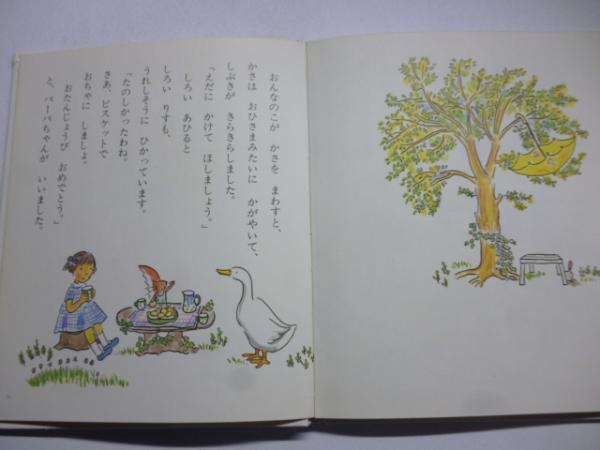 おんなのこが かさを まわすと、
かさは おひさまみたいに かがやいて、
しぶきが きらきらしました。
「えだに かけて ほしましょう。」
しろい あひると
しろい りすも、
うれしそうに ひかっています。
「たのしかったわね。
さあ、ビスケットで
おちゃに しましょ。
おたんじょうび おめでとう。」
と、バーバちゃんが いいました。